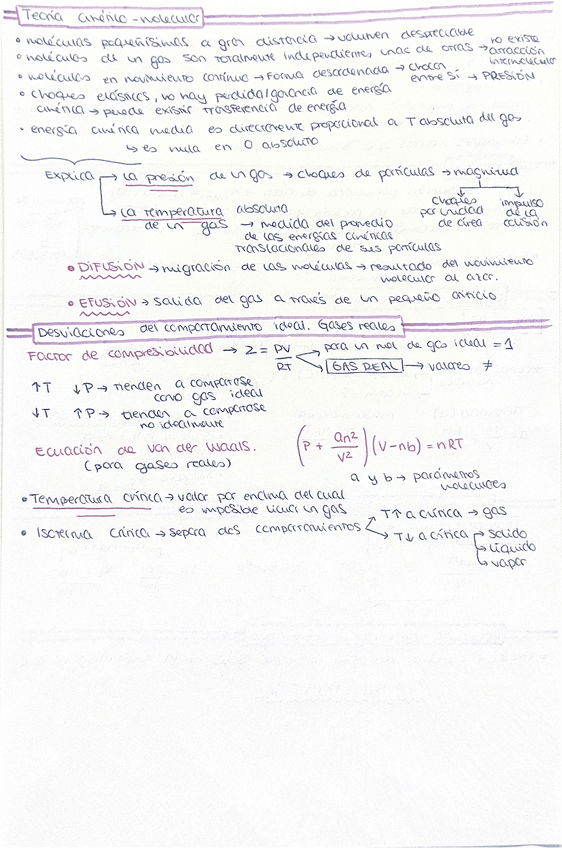 Teoría cinético-molecular
• moléculas pequeñísimas a gran distancia → volumen despreciable
• moléculas de un gas son totalmente independientes unas de otras → no existe atracción intermolecular
• moléculas en movimiento continuo → forma desordenada → chocan entre sí → PRESIÓN
• choques elásticos, no hay perdida/ganancia de energía
cinética → puede existir transferencia de energía
• energía cinética media es directamente proporcional a T absoluta del gas
↳ es nula en 0 absoluto
Explica → la presión de un gas → choques de partículas → magnitud
choques por unidad de área
impulso de la colisión
→ la temperatura absoluta
de un gas → medida del promedio
de las energías cinéticas
translacionales de sus partículas
• DIFUSIÓN → migración de las moléculas → resultado del movimiento
molecular al azar.
• EFUSIÓN → salida del gas a través de un pequeño orificio
Desviaciones del comportamiento ideal. Gases reales
Factor de compresibilidad → Z = PV/RT → para un mol de gas ideal = 1
→ GAS REAL → valores ≠
↑T ↓P → tienden a comportarse
como gas ideal
↓T ↑P → tienden a comportarse
no idealmente
Ecuación de van der Waals. (P + an²/V²) (V - nb) = nRT
(para gases reales)
a y b → parámetros
moleculares
• Temperatura crítica → valor por encima del cual
es imposible licuar un gas
• Isoterma crítica → separa dos comportamientos → T↑ a crítica → gas
→ T↓ a crítica → sólido
→ líquido
→ vapor